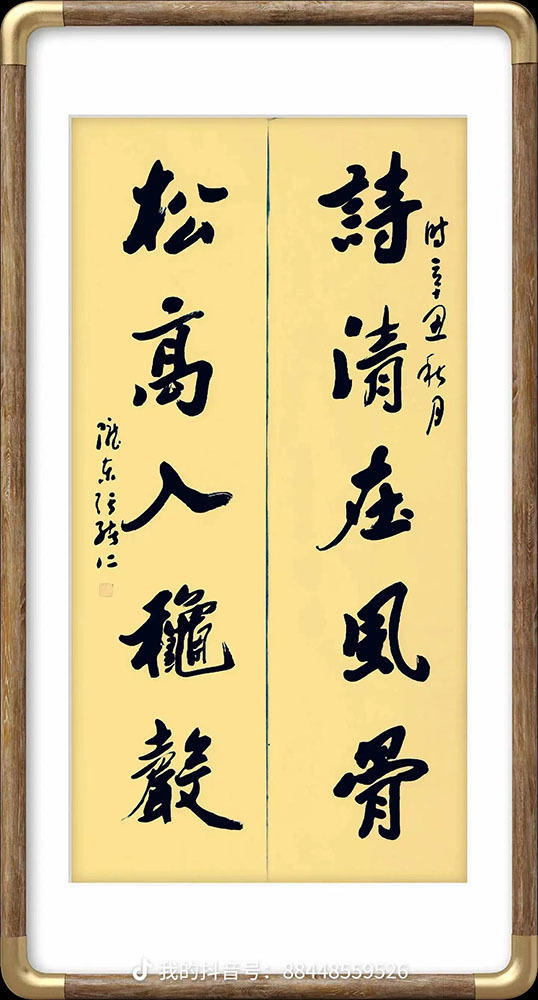 詩清在風骨
时辛丑秋月
松高入龝聲
隴东张継仁
我的抖音号：88448559526